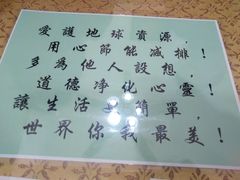 愛護地球資源，
用心節能減排！
多為他人設想，
道德淨化心靈！
讓生活更簡單，
世界你我最美！